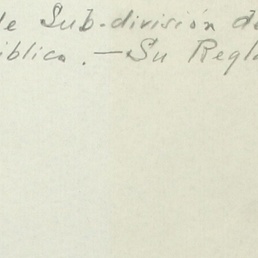 de Sub-división de
ública. — Su Regla